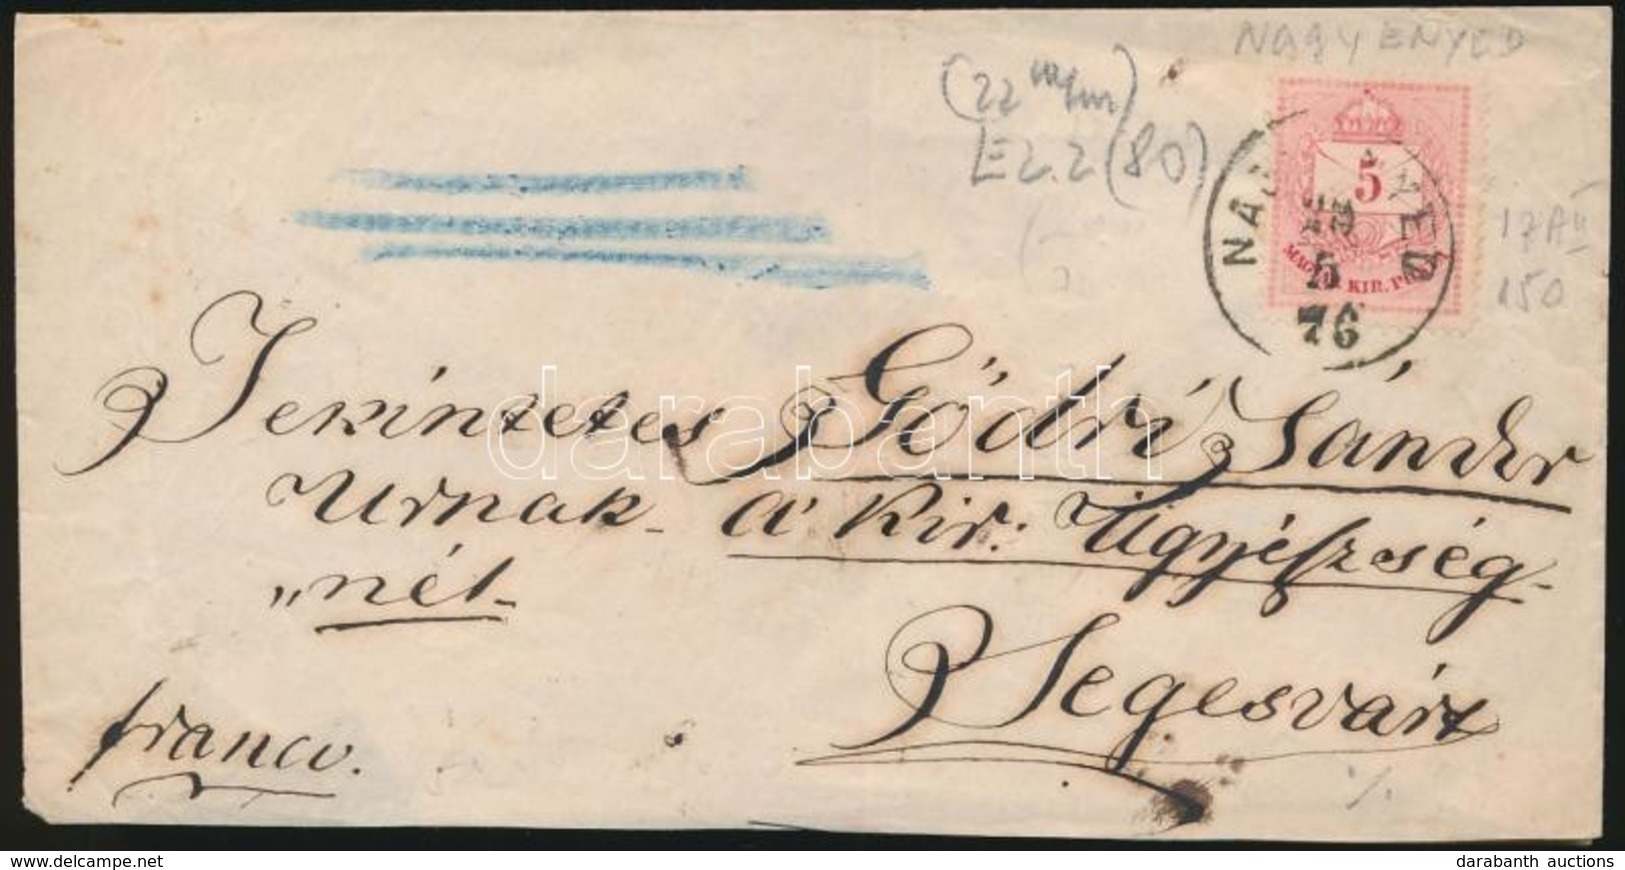 NAGYENYED
(22
E2.2 (80)
NAGYENYED
SEP
5
76
5
MAGYAR KIR. POSTA
17AII
150
Tekintetes Gödri Sándor
Urnak - a' Kir: Ügyészség-
„nél-
Segesvárt
franco.
darabanth
delcampe.net
darabanth auctions